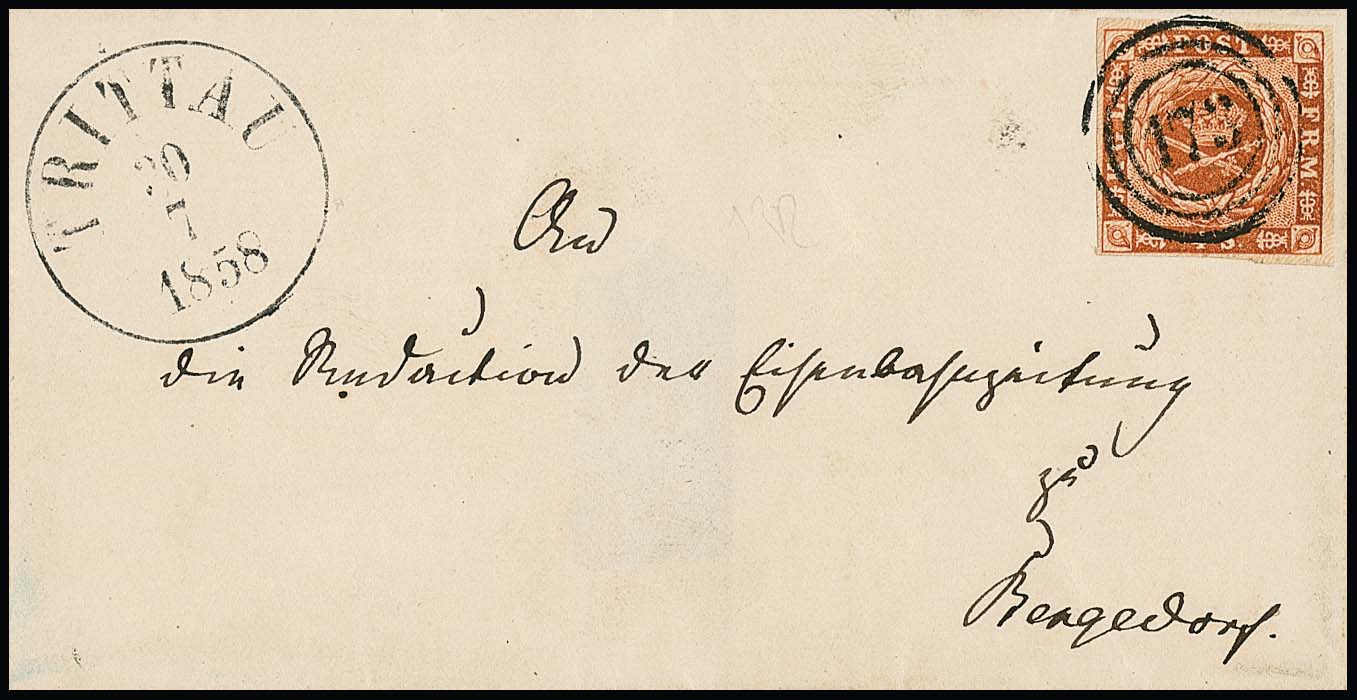 TRITTAU
20
7
1858
POST
FRM:
KGL
S.
An
die Redaction der Eisenbahnzeitung
zu
Bergedorf.